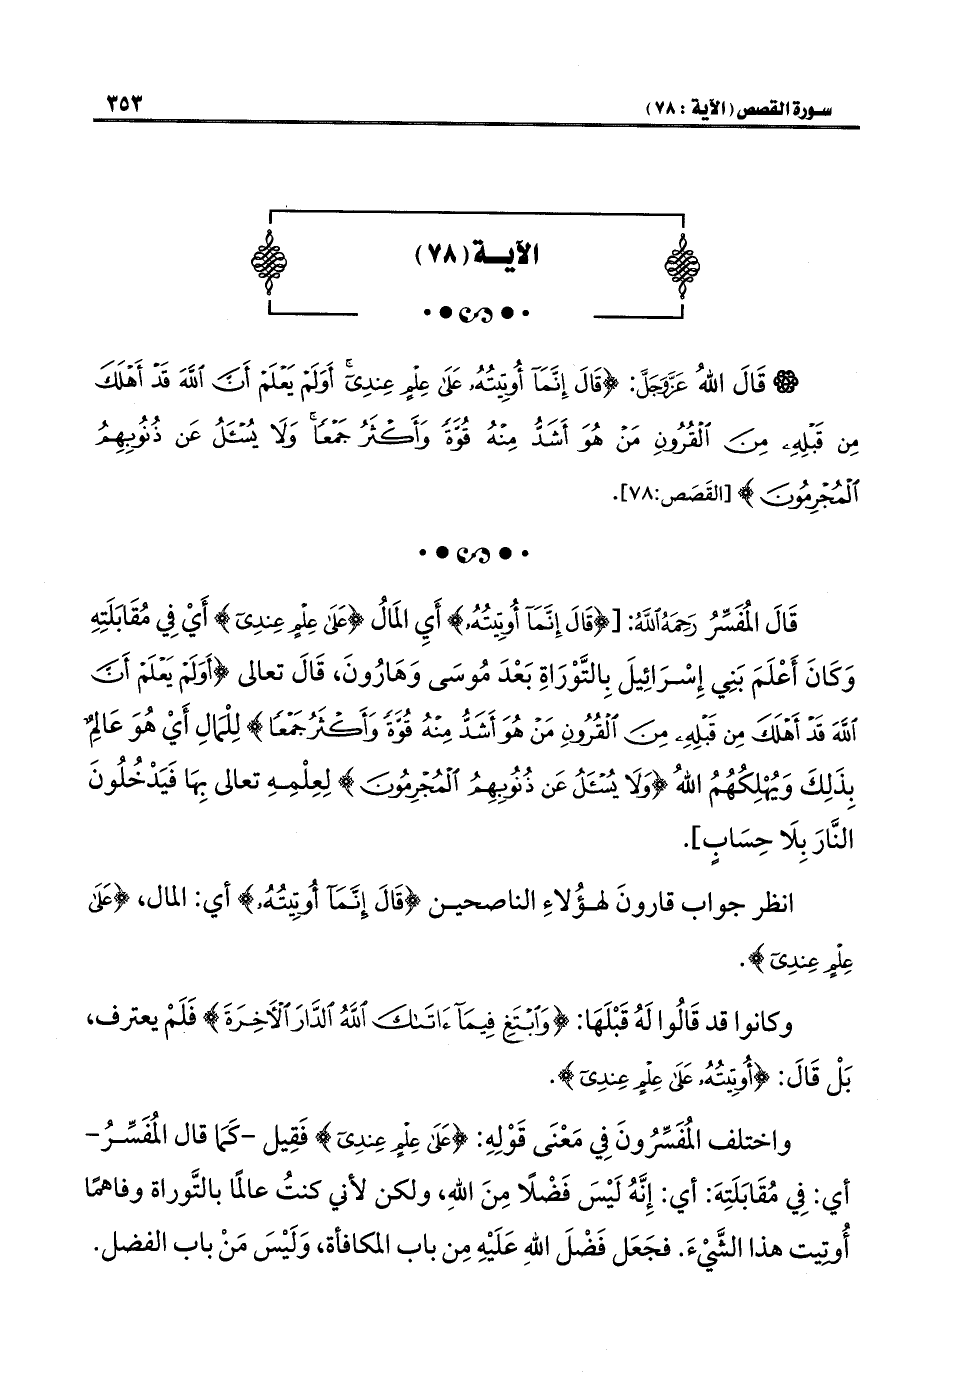 سورة القصص (الآية : ٧٨)
٣٥٣
الآيــة (٧٨)
قَالَ اللهُ عَزَّوَجَلَّ: ﴿قَالَ إِنَّمَآ أُوتِيتُهُۥ عَلَىٰ عِلۡمٍ عِندِيٓۚ أَوَلَمۡ يَعۡلَمۡ أَنَّ ٱللَّهَ قَدۡ أَهۡلَكَ
مِن قَبۡلِهِۦ مِنَ ٱلۡقُرُونِ مَنۡ هُوَ أَشَدُّ مِنۡهُ قُوَّةٗ وَأَكۡثَرُ جَمۡعٗاۚ وَلَا يُسۡـَٔلُ عَن ذُنُوبِهِمُ
ٱلۡمُجۡرِمُونَ﴾ [القَصَص:٧٨].
قَالَ المُفَسِّرُ رَحِمَهُ اللَّهُ: [﴿قَالَ إِنَّمَآ أُوتِيتُهُۥ﴾ أَيِ المَالُ ﴿عَلَىٰ عِلۡمٍ عِندِيٓ﴾ أَيْ فِي مُقَابَلَتِهِ
وَكَانَ أَعْلَمَ بَنِي إِسْرَائِيلَ بِالتَّوْرَاةِ بَعْدَ مُوسَى وَهَارُونَ، قَالَ تعالى ﴿أَوَلَمۡ يَعۡلَمۡ أَنَّ
ٱللَّهَ قَدۡ أَهۡلَكَ مِن قَبۡلِهِۦ مِنَ ٱلۡقُرُونِ مَنۡ هُوَ أَشَدُّ مِنۡهُ قُوَّةٗ وَأَكۡثَرُ جَمۡعٗا﴾ لِلْمَالِ أَيْ هُوَ عَالِمٌ
بِذَلِكَ وَيُهْلِكُهُمُ اللهُ ﴿وَلَا يُسۡـَٔلُ عَن ذُنُوبِهِمُ ٱلۡمُجۡرِمُونَ﴾ لِعِلْمِهِ تعالى بِهَا فَيَدْخُلُونَ
النَّارَ بِلَا حِسَابٍ].
انظر جواب قارونَ لهؤُلاءِ الناصحين ﴿قَالَ إِنَّمَآ أُوتِيتُهُۥ﴾ أي: المال، ﴿عَلَىٰ
عِلۡمٍ عِندِيٓ﴾.
وكانوا قد قَالُوا لَهُ قَبْلَهَا: ﴿وَٱبۡتَغِ فِيمَآ ءَاتَىٰكَ ٱللَّهُ ٱلدَّارَ ٱلۡأٓخِرَةَ﴾ فَلَمْ يعترف،
بَلْ قَالَ: ﴿أُوتِيتُهُۥ عَلَىٰ عِلۡمٍ عِندِيٓ﴾.
واختلف المُفَسِّرُونَ فِي مَعْنَى قَوْلِهِ: ﴿عَلَىٰ عِلۡمٍ عِندِيٓ﴾ فَقِيل -كَمَا قال المُفَسِّرُ-
أي: فِي مُقَابَلَتِهَ: أي: إِنَّهُ لَيْسَ فَضْلًا مِنَ اللهِ، ولكن لأني كنتُ عالمًا بالتَّوراة وفاهمًا
أُوتِيت هذا الشَّيْءَ. فجَعَل فَضْلَ اللهِ عَلَيْهِ مِن باب المكافأة، وَلَيْسَ مَنْ باب الفضل.